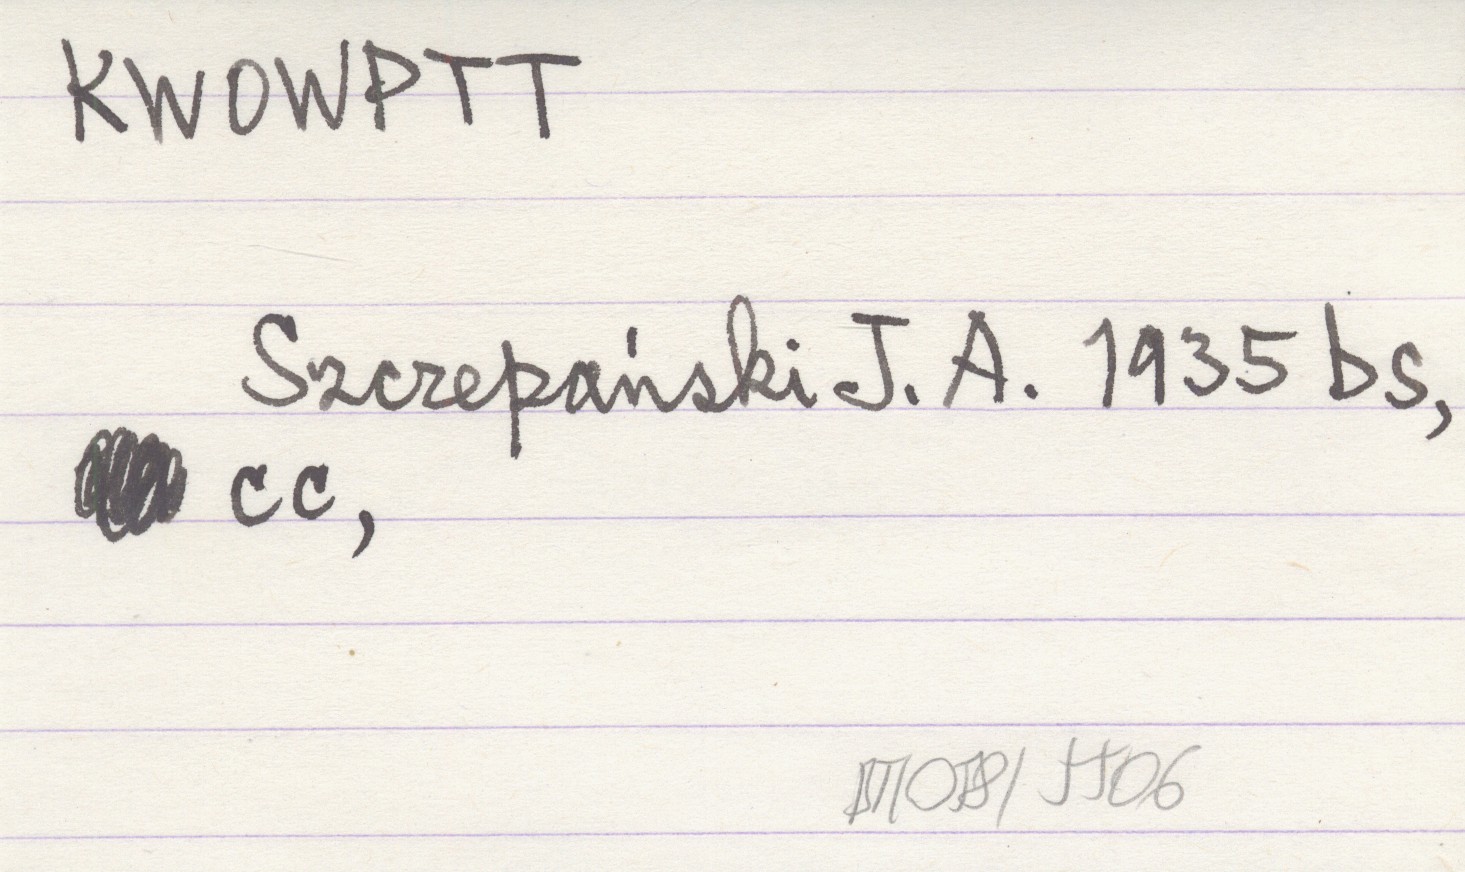 KWOWPTT
Szczepański J. A. 1935 bs,
cc,